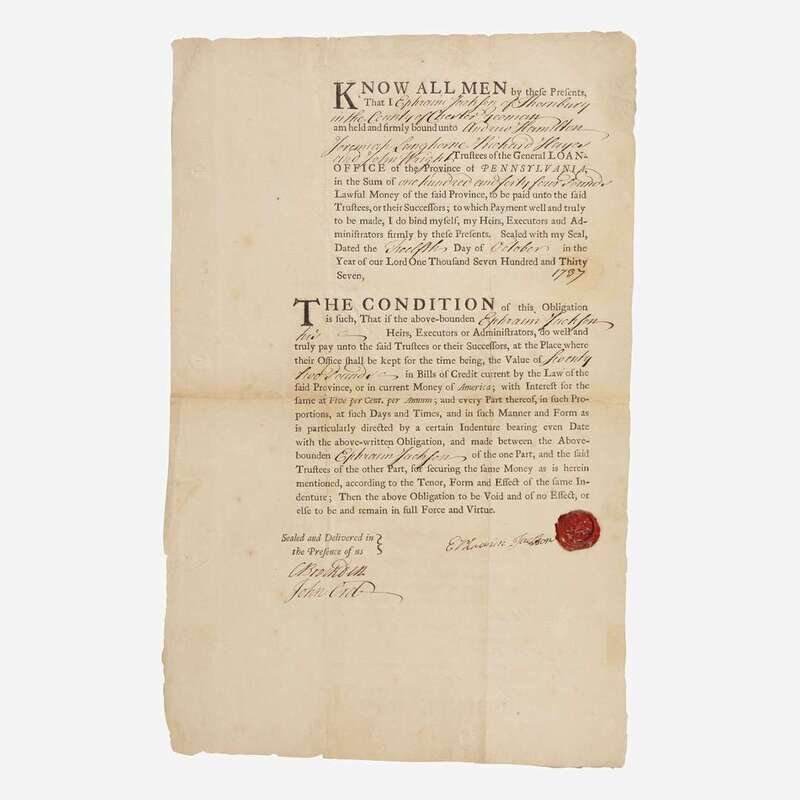 KNOW ALL MEN by these Presents,
That I Ephraim Jackson of Thornbury
in the County of Chester Yeoman
am held and firmly bound unto Andrew Hamilton
Jeremiah Langhorne Richard Hayes
and John Wright Trustees of the General LOAN-
OFFICE of the Province of PENNSYLVANIA,
in the Sum of one hundred and forty four Pounds
Lawful Money of the said Province, to be paid unto the said
Trustees, or their Successors; to which Payment well and truly
to be made, I do bind myself, my Heirs, Executors and Ad-
ministrators firmly by these Presents. Sealed with my Seal,
Dated the Twelfth Day of October in the
Year of our Lord One Thousand Seven Hundred and Thirty
Seven, 1737
THE CONDITION of this Obligation
is such, That if the above-bounden Ephraim Jackson
his Heirs, Executors or Administrators, do well and
truly pay unto the said Trustees or their Successors, at the Place where
their Office shall be kept for the time being, the Value of Seventy
two Pounds in Bills of Credit current by the Law of the
said Province, or in current Money of America; with Interest for the
same at Five per Cent. per Annum; and every Part thereof, in such Pro-
portions, at such Days and Times, and in such Manner and Form as
is particularly directed by a certain Indenture bearing even Date
with the above-written Obligation, and made between the Above-
bounden Ephraim Jackson of the one Part, and the said
Trustees of the other Part, for securing the same Money as is herein
mentioned, according to the Tenor, Form and Effect of the same In-
denture; Then the above Obligation to be Void and of no Effect, or
else to be and remain in full Force and Virtue.
Sealed and Delivered in
the Presence of us
Ephraim Jackson
C Brockden
John Ord